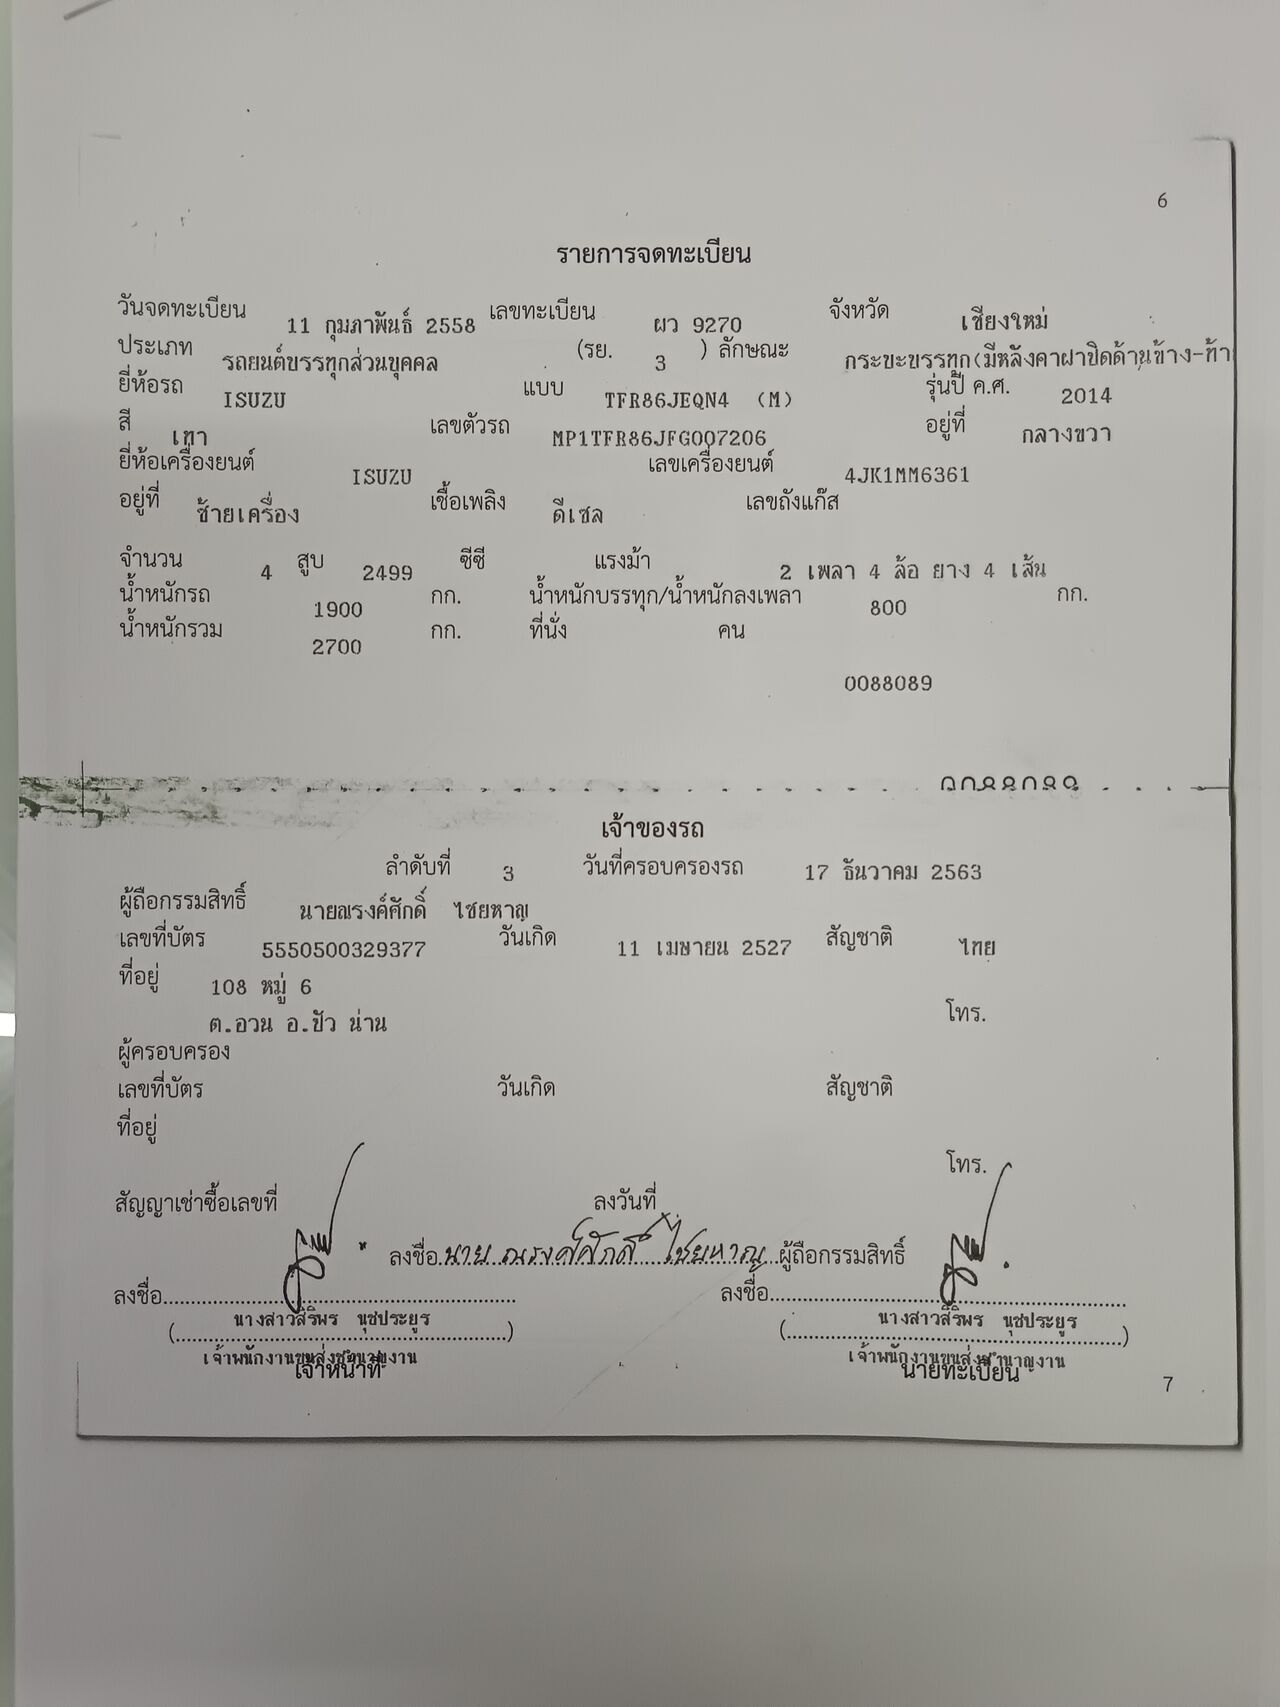 6
รายการจดทะเบียน
วันจดทะเบียน 11 กุมภาพันธ์ 2558 เลขทะเบียน ผว 9270 จังหวัด เชียงใหม่
ประเภท รถยนต์บรรทุกส่วนบุคคล (รย. 3 ) ลักษณะ กระบะบรรทุก(มีหลังคาฝาปิดด้านข้าง-ท้า
ยี่ห้อรถ ISUZU แบบ TFR86JEQN4 (M) รุ่นปี ค.ศ. 2014
สี เทา เลขตัวรถ MP1TFR86JFG007206 อยู่ที่ กลางขวา
ยี่ห้อเครื่องยนต์ ISUZU เลขเครื่องยนต์ 4JK1MM6361
อยู่ที่ ซ้ายเครื่อง เชื้อเพลิง ดีเซล เลขถังแก๊ส
จำนวน 4 สูบ 2499 ซีซี แรงม้า 2 เพลา 4 ล้อ ยาง 4 เส้น
น้ำหนักรถ 1900 กก. น้ำหนักบรรทุก/น้ำหนักลงเพลา 800 กก.
น้ำหนักรวม 2700 กก. ที่นั่ง คน
0088089
เจ้าของรถ
ลำดับที่ 3 วันที่ครอบครองรถ 17 ธันวาคม 2563
ผู้ถือกรรมสิทธิ์ นายณรงค์ศักดิ์ ไชยหาญ
เลขที่บัตร 5550500329377 วันเกิด 11 เมษายน 2527 สัญชาติ ไทย
ที่อยู่ 108 หมู่ 6
ต.อวน อ.ปัว น่าน โทร.
ผู้ครอบครอง
เลขที่บัตร วันเกิด สัญชาติ
ที่อยู่
โทร.
สัญญาเช่าซื้อเลขที่ ลงวันที่
ลงชื่อ.นาย ณรงค์ศักดิ์ ไชยหาญ...ผู้ถือกรรมสิทธิ์
ลงชื่อ.................... ลงชื่อ....................
(นางสาวสิริพร นุชประยูร) (นางสาวสิริพร นุชประยูร)
เจ้าพนักงานขนส่งชำนาญงาน เจ้าพนักงานขนส่งชำนาญงาน
เจ้าหน้าที่ นายทะเบียน
7